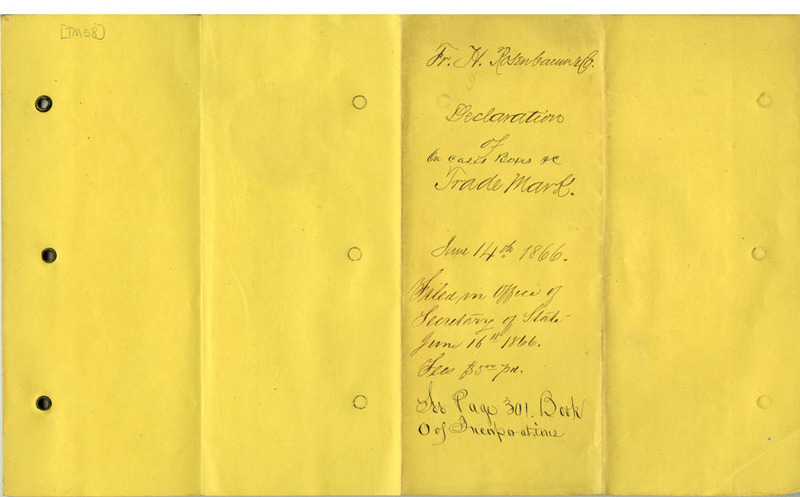 [TM58]
Fr. H. Rosenbaum & Co.
Declaration
of
On Cases Boxes &c
Trade Mark.
June 14th 1866.
Filed in Office of
Secretary of State
June 16th 1866.
Fees $5.00 pd.
See Page 301. Book
O of Incorporations